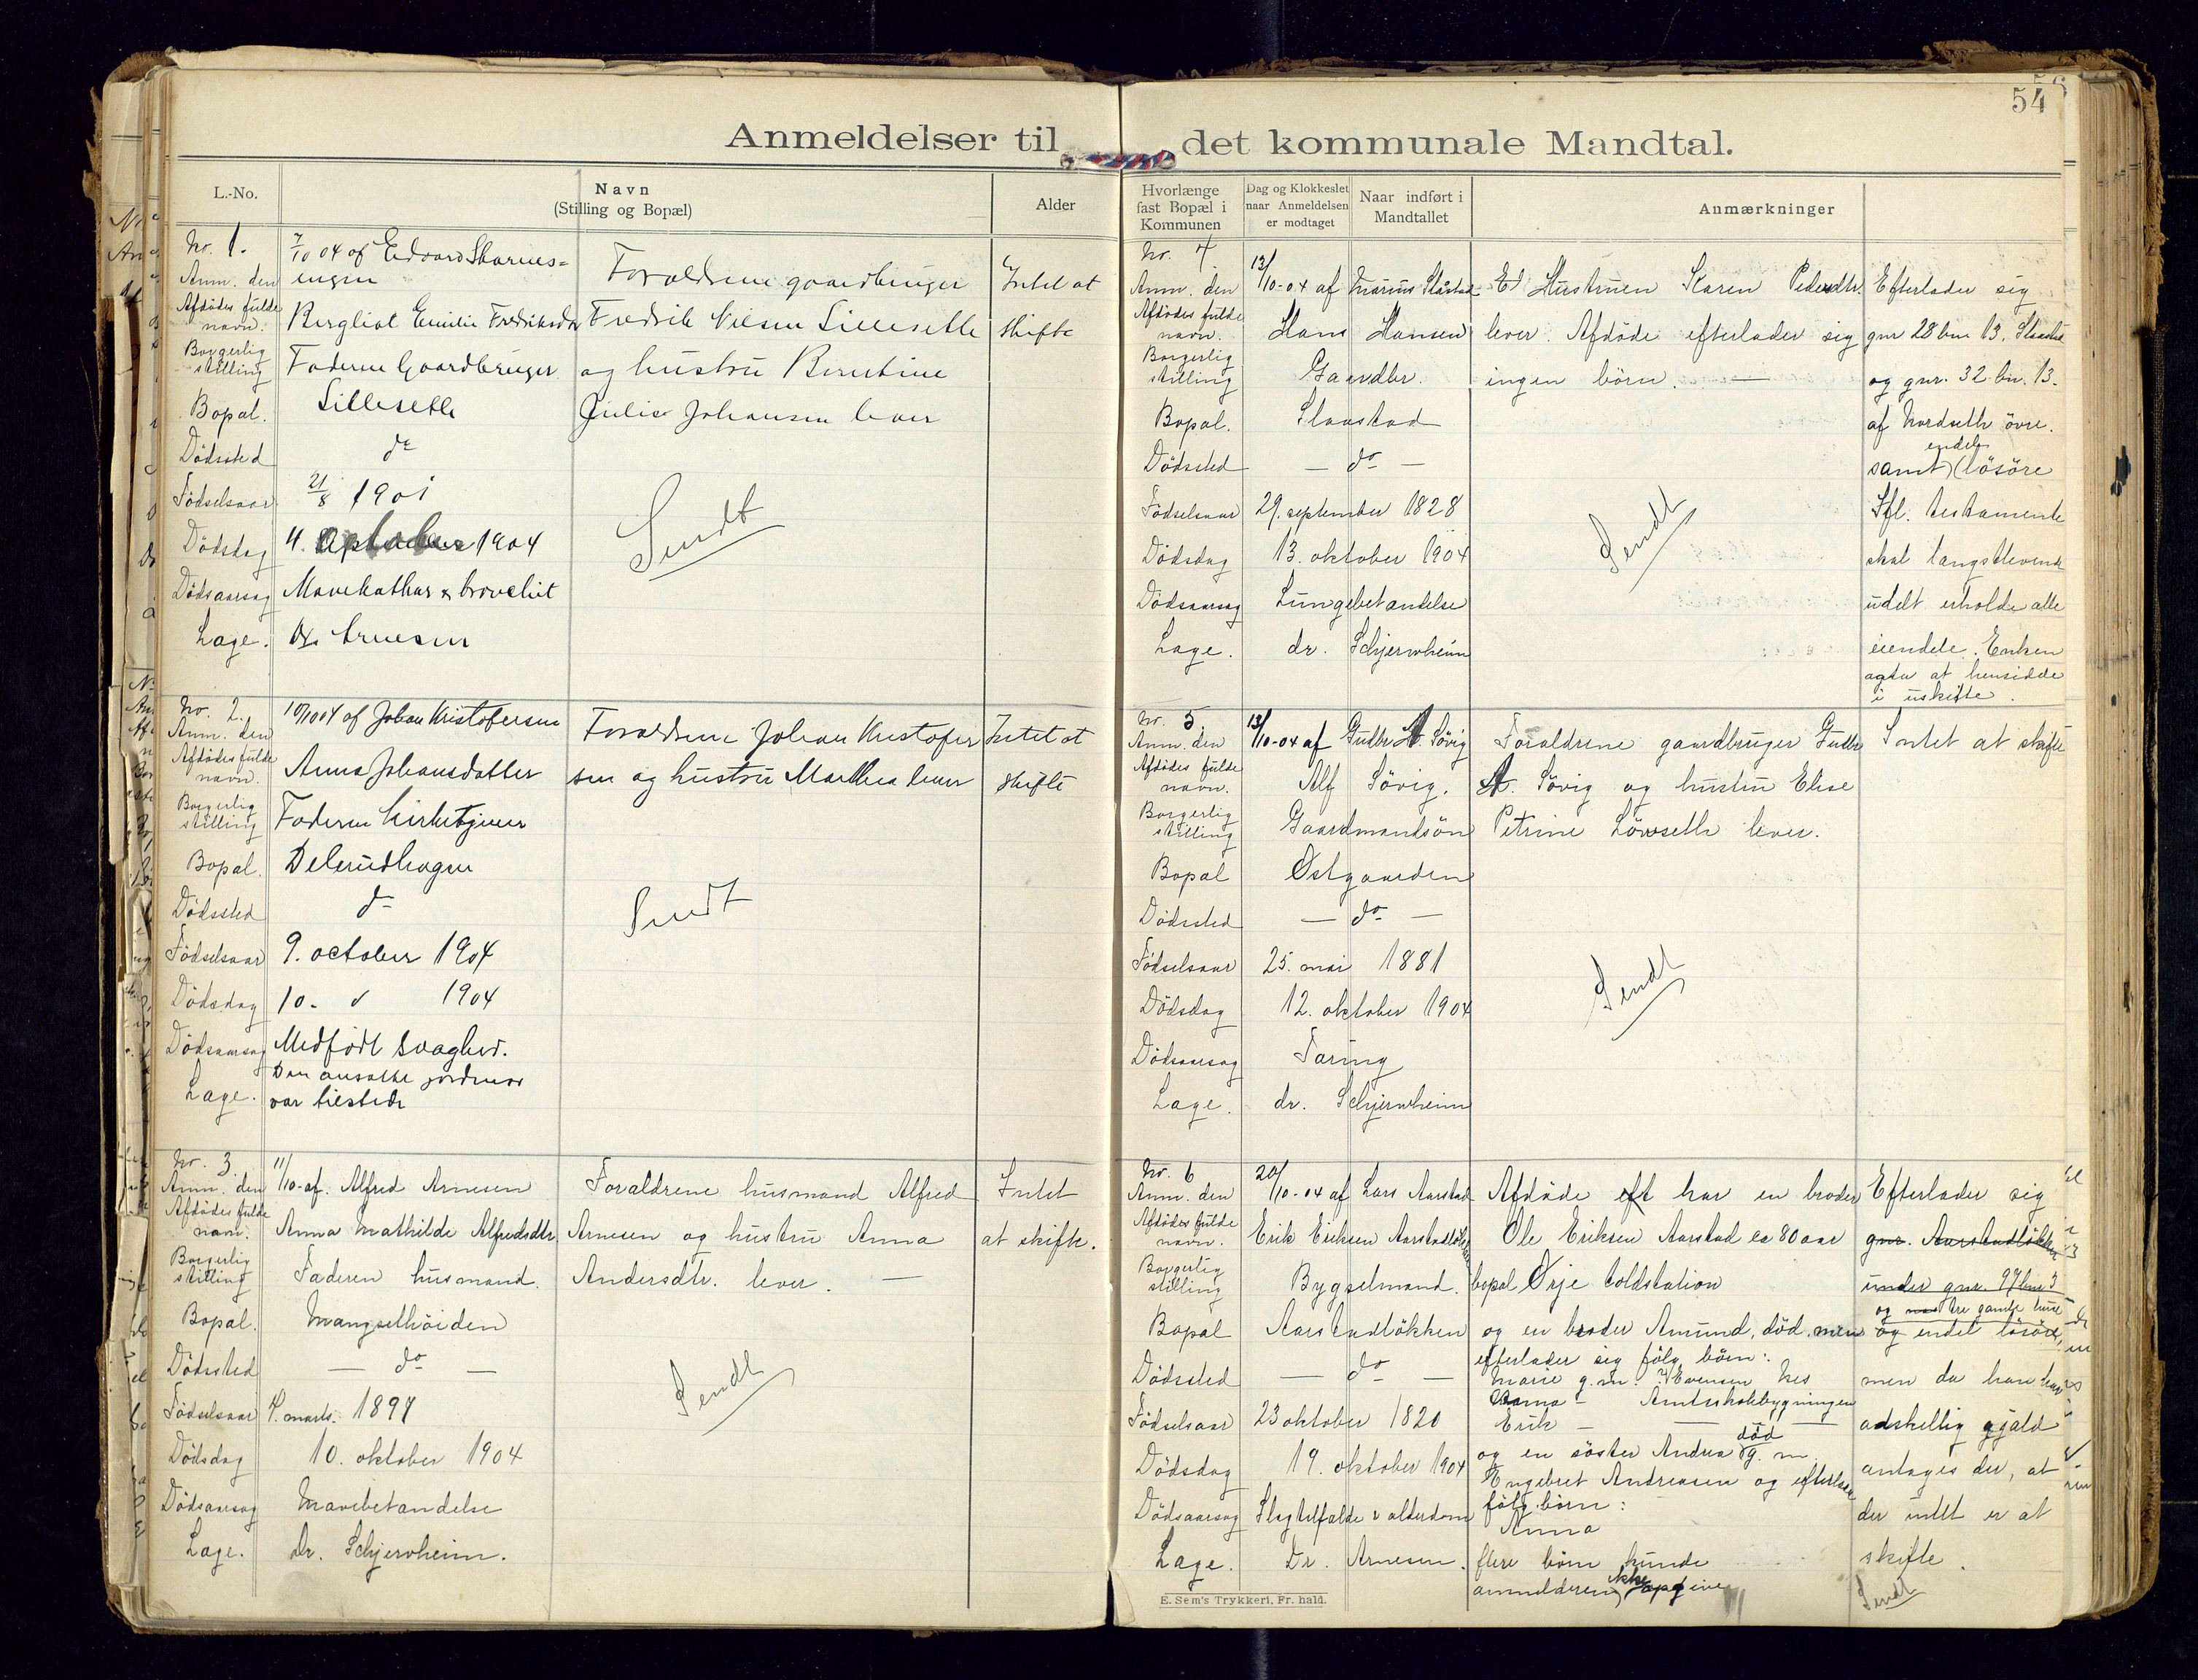 54
Anmeldelser til det kommunale Mandtal.
L.-No.
Navn
(Stilling og Bopæl)
Alder
No. 1.
7/10 04 af Edvard Skarnes=
engen
Anm. den
Afdødes fulde
navn:
Bergliot Emilie Fredriksdtr
Borgerlig
stilling
Faderen Gaardbruger
Bopæl. Lillesette
Dödssted do
Födselsaar 21/8 1901
Dödsdag 4. 1904
Dödsaarsag Mavekathar
Læge. Dr. Arnesen
Forældrene gaardbruger
Fredrik Nilsen Lillesette
og hustru Berntine
Julie Johansen lever
Sendt
Intet at
skifte
No. 2.
Anm. den 10/10 04 af Johan Kristofersen
Afdødes fulde
navn. Anna Johansdatter
Borgerlig
stilling Faderen Kirketjener
Bopæl. Delerudhagen
Dödssted do
Födselsaar 9. october 1904
Dödsdag 10. 1904
Dödsaarsag Medfödt svaghed.
Læge. Den ansatte jordmor
var tilstede
Forældrene Johan Kristofer
sen og hustru Marthea lever
Sendt
Intet at
skifte
No. 3.
Anm. den 11/10 af. Alfred Arnesen
Afdødes fulde
navn. Anna Mathilde Alfredsdtr.
Borgerlig
stilling Faderen husmand.
Bopæl. Mangselhöiden
Dödssted — do —
Födselsaar 4. marts. 1897
Dödsdag 10. oktober 1904
Dödsaarsag Mavebetændelse
Læge. Dr. Schjervheim.
Forældrene husmand Alfred
Arnesen og hustru Anna
Andersdtr. lever. —
Sendt
Intet
at skifte.
Hvorlænge
fast Bopæl i
Kommunen
Dag og Klokkeslet
naar Anmeldelsen
er modtaget
Naar indført i
Mandtallet
Anmærkninger
No. 4.
Anm. den 13/10-04 af Marius Slåstad
Afdødes fulde
navn. Hans Hansen
Borgerlig
stilling Gaardbr.
Bopæl. Slaastad
Dödssted — do —
Födselsaar 29. september 1828
Dödsdag 13. oktober 1904
Dödsaarsag Lungebetændelse
Læge. dr. Schjervheim
Hustruen Karen Pedersdtr.
lever. Afdöde efterlader sig
ingen börn. —
Sendt
Efterlader sig
gnr 28 bnr 13, Slaastad
og gnr. 32 bn. 13.
af Nordseth övre.
endel
samt (lösöre
Ifl. testamente
skal længstlevende
udelt erholde alle
eiendele. Enken
agter at hensidde
i uskifte.
No. 5.
Anm. den 13/10-04 af Gudbr A. Sövig
Afdødes fulde
navn. Alf Sövig.
Borgerlig
stilling Gaardmandsön
Bopæl Østgaarden
Dödssted — do —
Födselsaar 25. mai 1881
Dödsdag 12. oktober 1904
Dödsaarsag Tæring
Læge. dr. Schjervheim
Forældrene gaardbruger Gudbr
A. Sövig og hustru Elise
Petrine Lövseth lever.
Sendt
Intet at skifte
No. 6
Anm. den 20/10-04 af Lars Aarstad
Afdødes fulde
navn. Erik Eriksen Aarstadløkken
Borgerlig
stilling Bygselmand.
Bopæl Aarstadløkken
Dödssted — do —
Födselsaar 23 oktober 1820
Dödsdag 19. oktober 1904
Dödsaarsag Slagtilfælde & alderdom
Læge. Dr. Arnesen.
Afdöde eft har en broder
Ole Eriksen Aarstad ca 80 aar
bopæl Ørje toldstation
og en broder Amund, död, men
efterlader sig fölg. börn:
Marie g.m. Evensen Nes
Anna — Amtsskolebygningen
Erik — — —
död
og en söster Andrea g. m.
Engebret Andreasen og efterlader
fölg. börn:
Anna
flere börn kunde
anmelderen ikke opgive
Efterlader sig
gnr. Aarstadlökken
under gnr. 97 bnr 3
og tre gamle huse
og endel lösöre,
men da han har
adskellig gjæld
antages der, at
der intet er at
skifte.
Sendt
E. Sem's Trykkeri, Fr. hald.